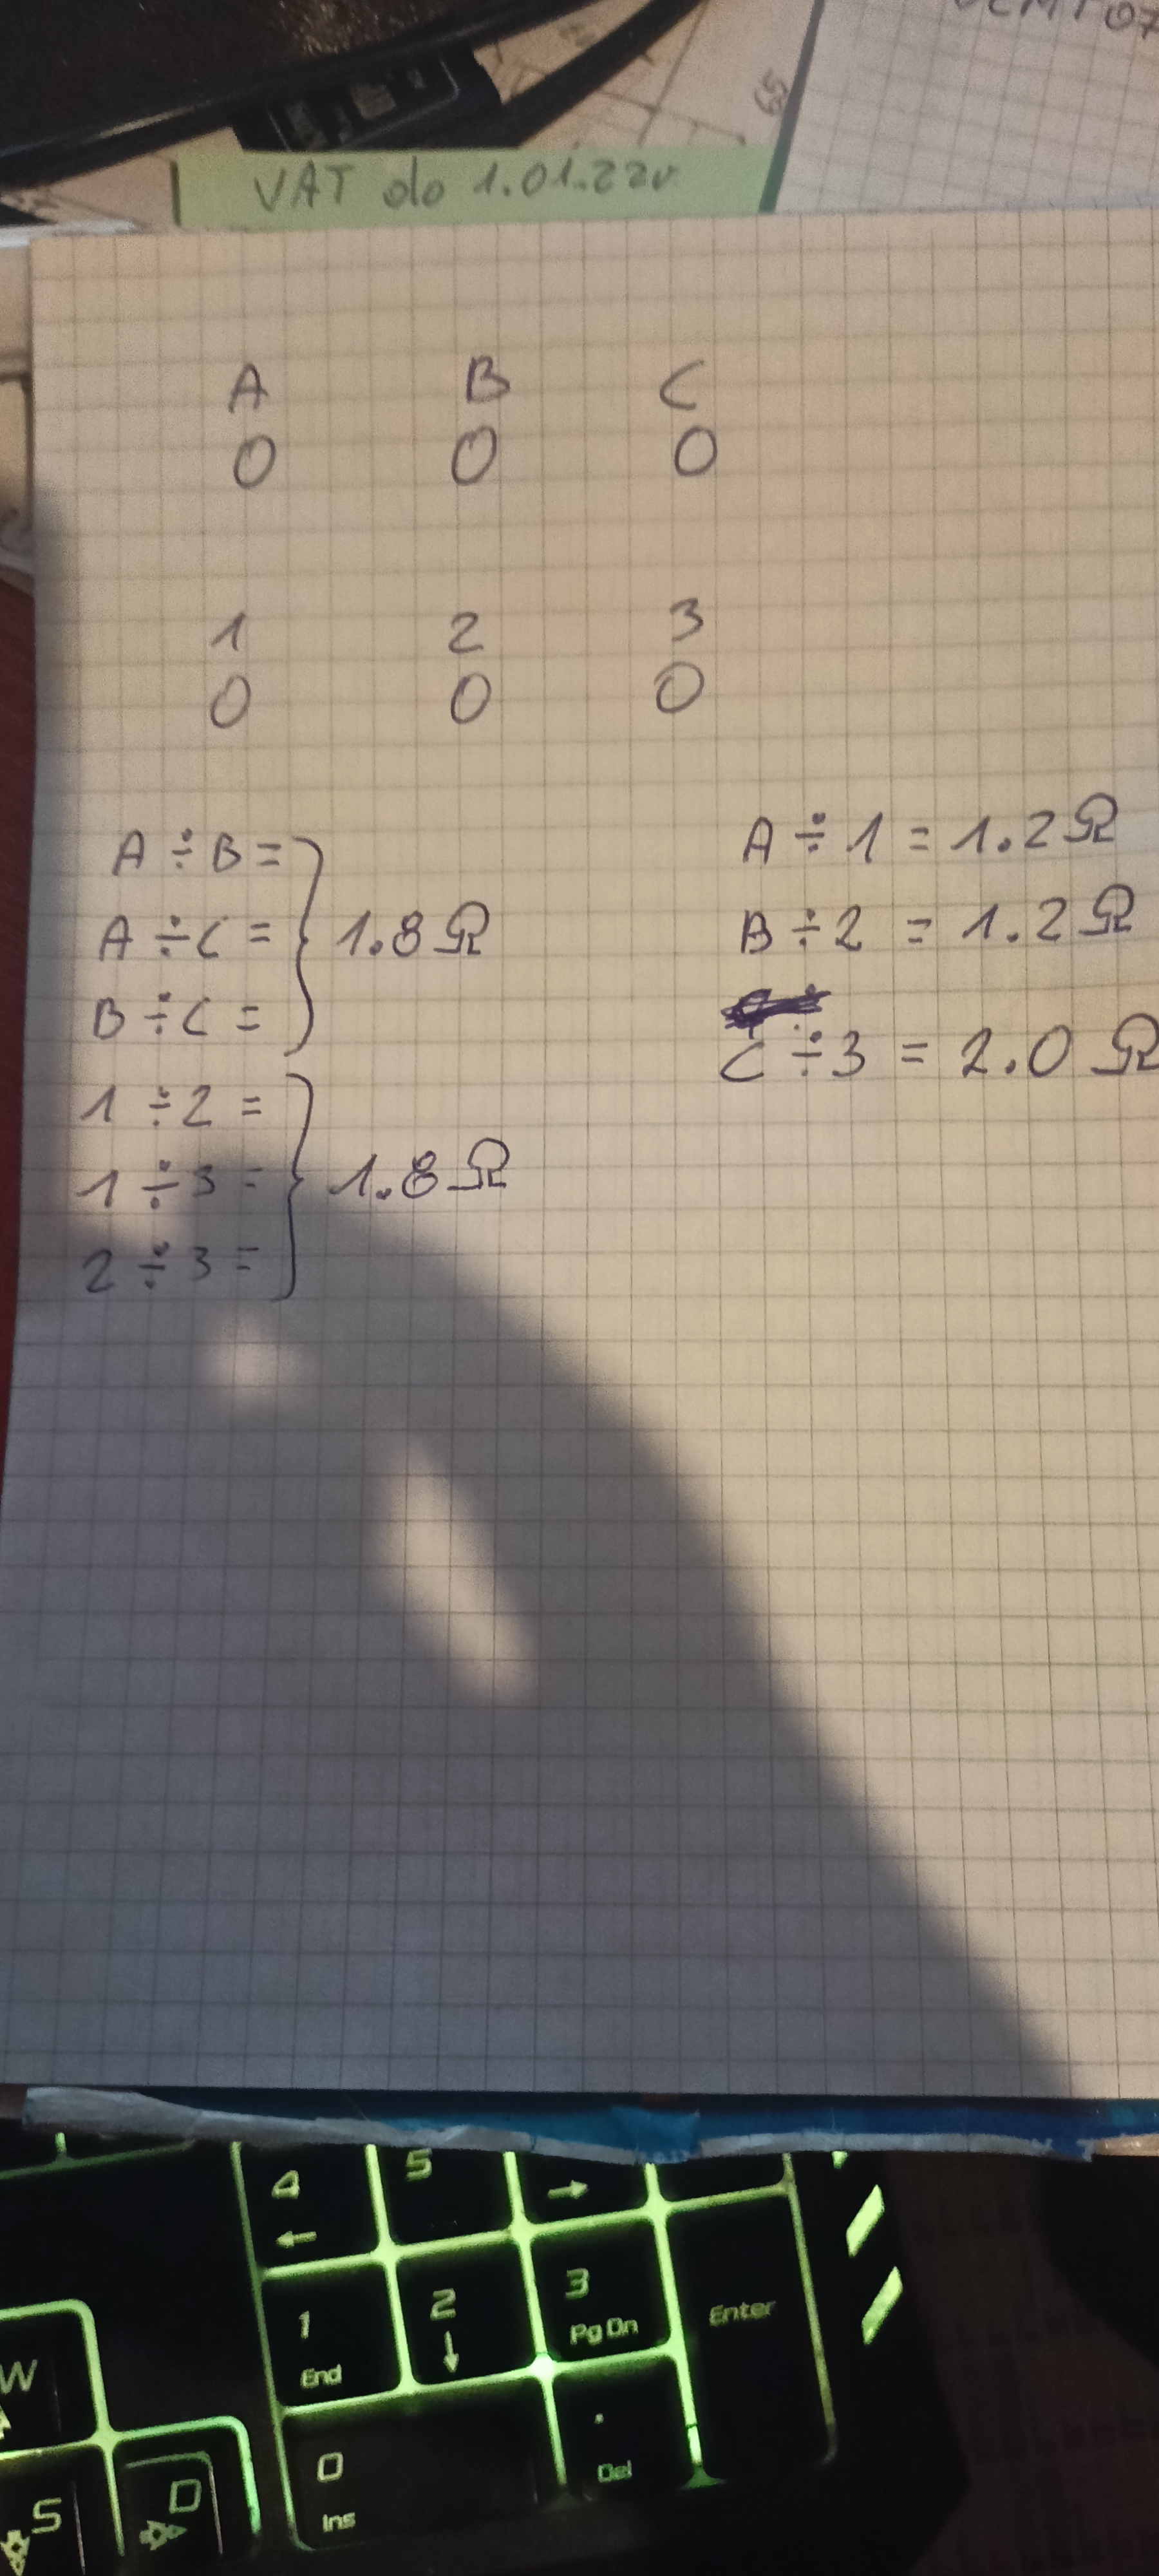 VAT do 1.01.22r.
65
A B C
0 0 0
1 2 3
0 0 0
A ÷ B =
A ÷ C =
B ÷ C =
1.8 Ω
1 ÷ 2 =
1 ÷ 3 =
2 ÷ 3 =
1.8 Ω
A ÷ 1 = 1.2 Ω
B ÷ 2 = 1.2 Ω
C ÷ 3 = 2.0 Ω
4 5
← →
1 2 3
End ↓ Pg Dn
Enter
0 .
Ins Del
W
S D